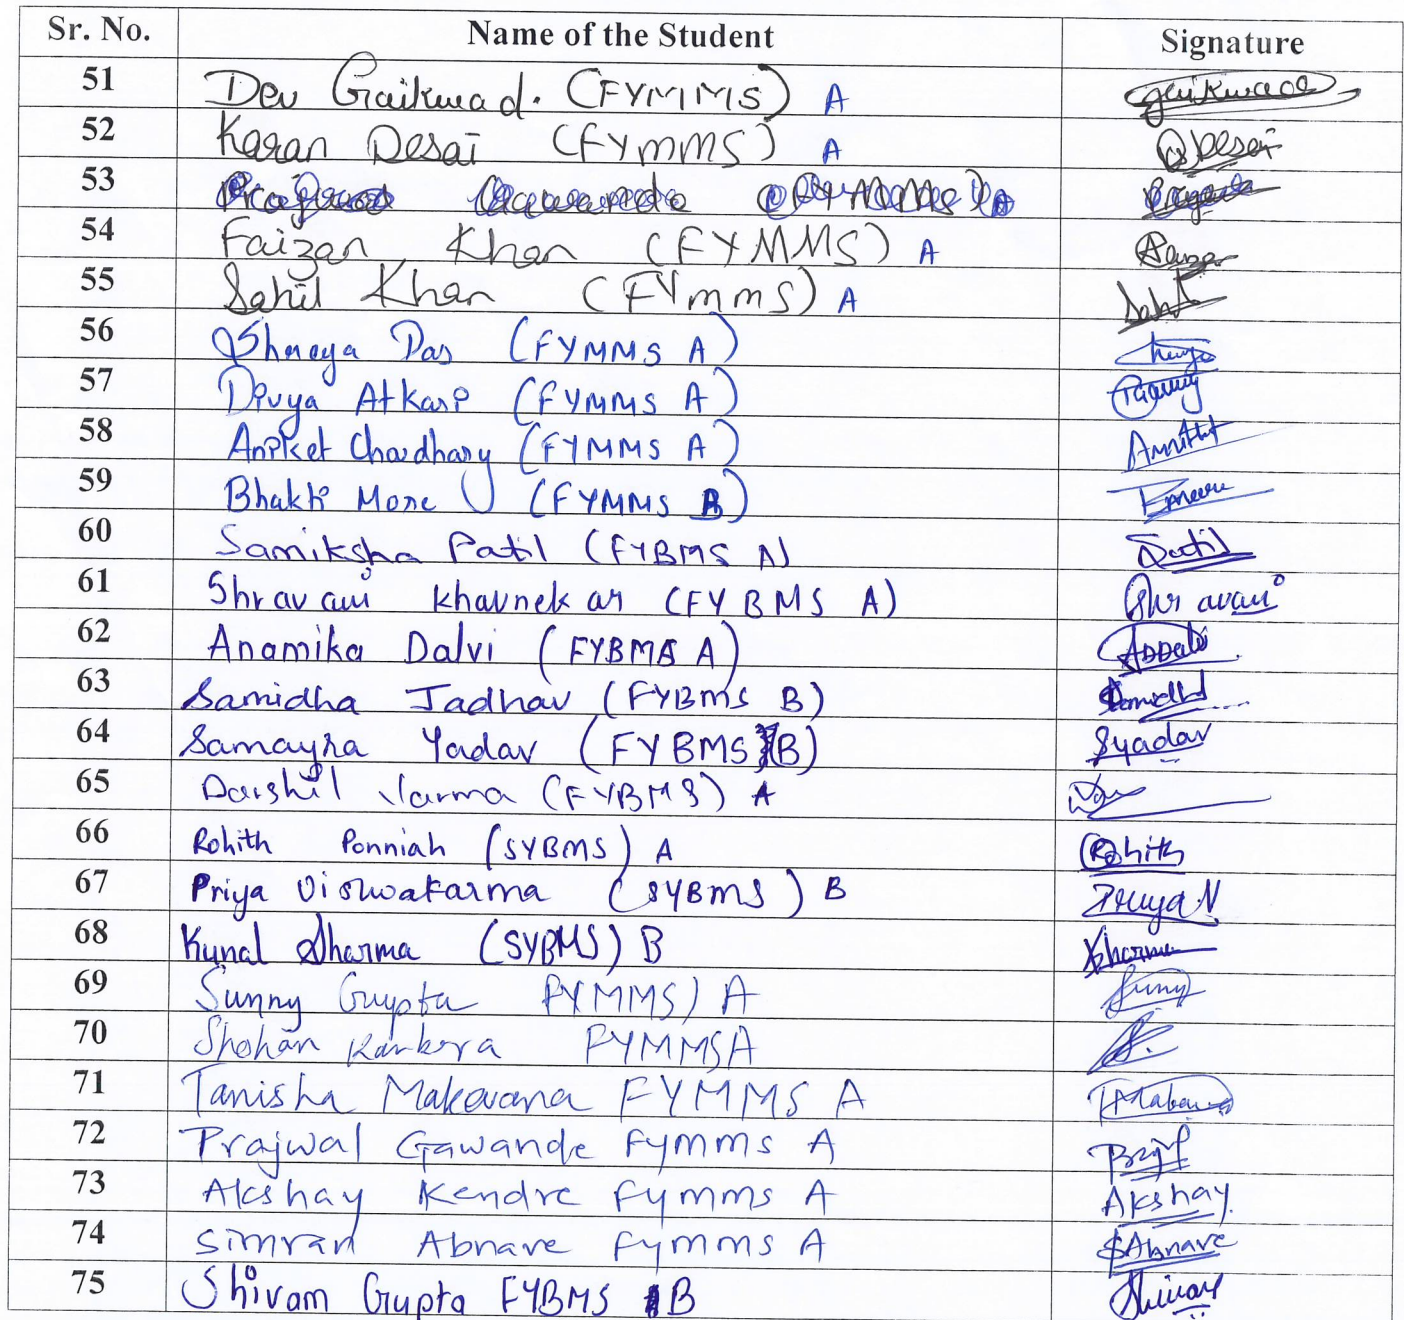 Sr. No. Name of the Student Signature
51 Dev Gaikwad. (FYMMS) A Gaikwad
52 Karan Desai (FYMMS) A Desai
53
54 Faizan Khan (FYMMS) A
55 Sahil Khan (FYmmS) A Sahil
56 Shreya Das (FYMMS A)
57 Divya Atkari (FYMMS A)
58 Aniket Chaudhary (FYMMS A)
59 Bhakti More (FYMMS B)
60 Samiksha Patil (FYBMS A)
61 Shravani Khavnekar (FYBMS A) Shravani
62 Anamika Dalvi (FYBMS A)
63 Samidha Jadhav (FYBmS B) Samidha
64 Samayra Yadav (FYBMS B) Syadav
65 Darshil Varma (FYBMS) A
66 Rohith Ponniah (SYBMS) A Rohith
67 Priya Viswakarma (SYBmS) B
68 Kunal Sharma (SYBMS) B
69 Sunny Gupta FYMMS) A Sunny
70 Shohan FYMMSA
71 Tanisha Makavana FYMMS A
72 Prajwal Gawande Fymms A
73 Akshay Kendre Fymms A Akshay
74 Simran Abnave Fymms A SAbnave
75 Shivam Gupta FYBMS B Shivam